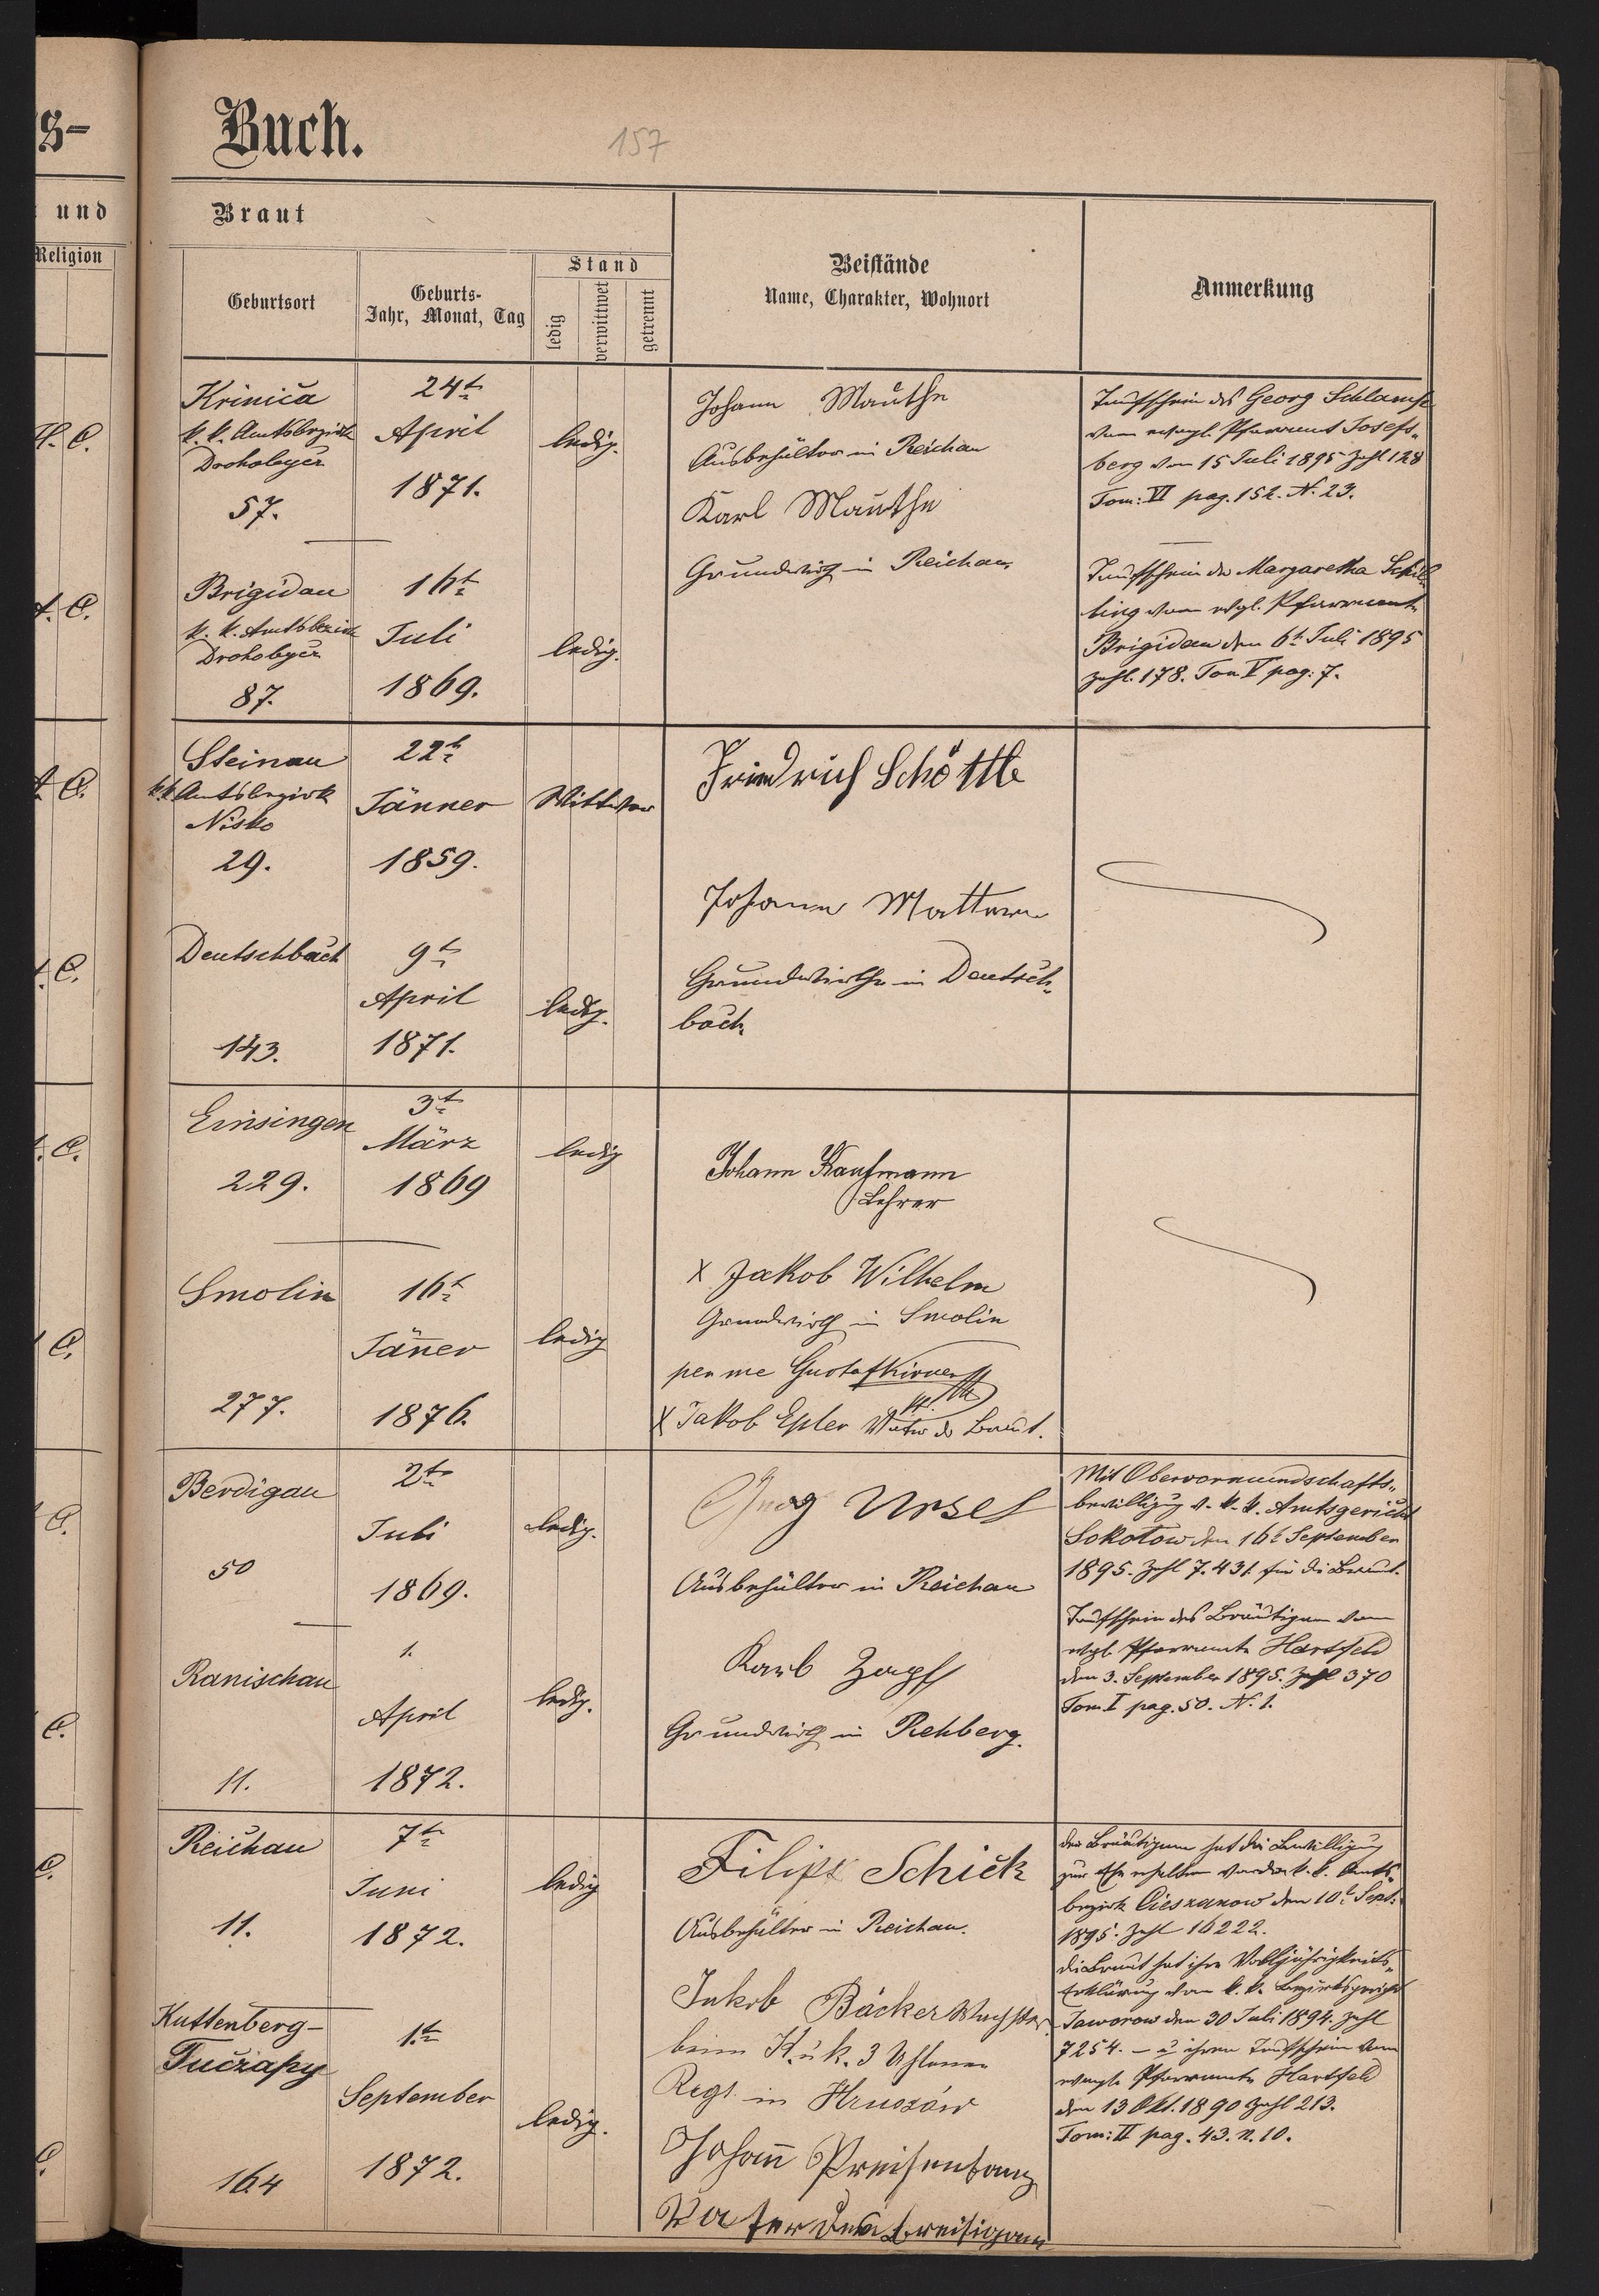 s-
Buch.
157
und
Braut
Religion
Geburtsort
Geburts-
Jahr, Monat, Tag
Stand
ledig
verwittwet
getrennt
Beistände
Name, Charakter, Wohnort
Anmerkung
Krinica
k. k. Amtsbezirk
Drohobycz
57.
24t
April
1871.
ledig.
Johann Mauthe
Ausbehälter in Reichau
Karl Mauthe
Grundwirth in Reichau
Taufschein des Georg Schlamp
vom evangl. Pfarramt Josefs-
berg vom 15 Juli 1895 Zahl 128
Tom: VI pag. 152. N. 23.
Brigidau
k. k. Amtsbezirk
Drohobycz
87.
16t
Juli
1869.
ledig.
Taufschein der Margaretha Schil-
ling vom evgl. Pfarramt
Brigidau den 6t Juli 1895
Zahl. 178. Tom V pag: 7.
Steinau
k.k. Amtsbezirk
Nisko
29.
22t
Jänner
1859.
Wittwer
Friedrich Schöttle
Johann Mattern
Grundwirthe in Deutsch-
bach
Deutschbach
143.
9t
April
1871.
ledig.
Einsingen
229.
3t
März
1869
ledig
Johann Kaufmann
Lehrer
X Jakob Wilhelm
Grundwirth in Smolin
per me Gustaf Kirner
X Jakob Epler Vater der Braut.
Smolin
277.
16t
Jäner
1876.
ledig
Berdigau
50
2t
Juli
1869.
ledig.
Ursel
Ausbehälter in Reichau
Karl Zapf
Grundwirth in Rehberg.
Mit Obervormundschafts-
bewilligug v. k. k. Amtsgericht
Sokołow den 16t September
1895. Zahl 7.431. für die Braut.
Taufschein des Bräutigam vom
evgl. Pfarramte Hartfeld
den 3. September 1895. Zahl 370
Tom I pag. 50. N. 1.
Ranischau
11.
1.
April
1872.
ledig.
Reichau
11.
7t
Juni
1872.
ledig
Filipp Schick
Ausbehälter in Reichau.
Jakob Bäcker
beim K. u. k. 3 Uhlanen
Regt. in Hruszów
Johann Preisentanz
Vater des
der Bräutigam hat die Bewilligung
zur Ehe erhalten von der k. k. Amts-
bezirk Cieszanow den 10t Sept.
1895. Zahl 16222.
die Braut hat ihre Volljährigkeits-
Erklärung vom k. k. Bezirksgericht
Jaworow den 30 Juli 1894. Zahl
7254. – u ihren Taufschein vom
evangl. Pfarramte Hartfeld
den 13 Okt. 1890 Zahl 213.
Tom: II pag. 43. n. 10.
Kuttenberg-
Tuczapy
164
1.t
September
1872.
ledig.